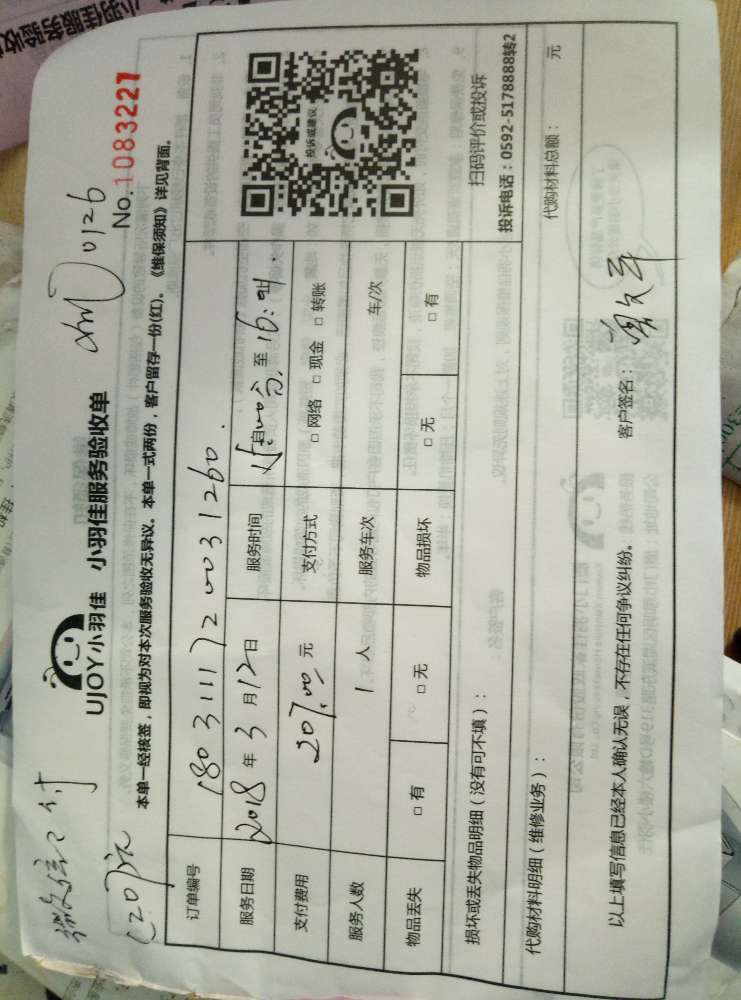 小羽佳服务
验收单
微信已付
(207元)
UJOY小羽佳 小羽佳服务验收单
0126
No.1083227
本单一经核签，即视为对本次服务验收无异议。本单一式两份，客户留存一份(红)。《维保须知》详见背面。
订单编号 1803111720031260
服务日期 2018 年 3 月 12 日 服务时间 自 至 16:
支付费用 207.00 元 支付方式 □ 网络 □ 现金 □ 转账
服务人数 1 人 服务车次 车/次
物品丢失 □ 有 □ 无 物品损坏 □ 无 □ 有
投诉或建议
扫码评价或投诉
投诉电话：0592-5178888转2
损坏或丢失物品明细（没有可不填）：
代购材料明细（维修业务）： 代购材料总额： 元
以上填写信息已经本人确认无误，不存在任何争议纠纷。 客户签名：